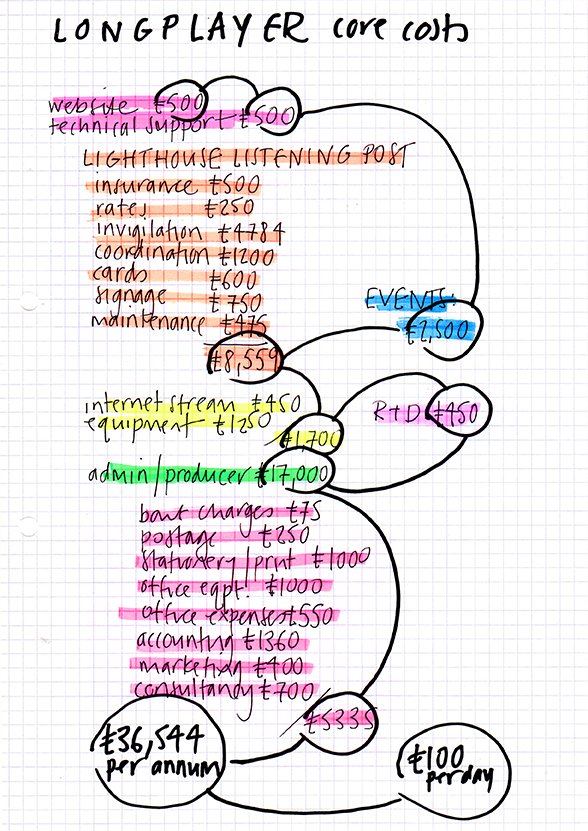 LONGPLAYER core costs
website £500
technical support £500
LIGHTHOUSE LISTENING POST
insurance £500
rates £250
invigilation £4784
coordination £1200
cards £600
signage £750
maintenance £475
£8,559
EVENTS:
£2,500
internet stream £450
equipment £1250
£1,700
R+D £450
admin/producer £17,000
bank charges £75
postage £250
stationery/print £1000
office eqpt. £1000
office expenses £550
accounting £1360
marketing £400
consultancy £700
£5335
£36,544
per annum
£100
per day